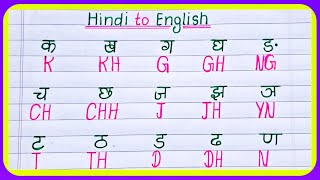 Hindi to English
क ख ग घ ङ
K KH G GH NG
च छ ज झ ञ
CH CHH J JH YN
ट ठ ड ढ ण
T TH D DH N